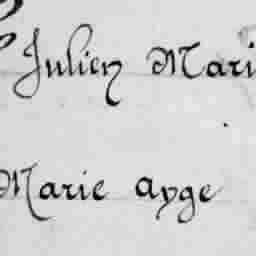 Julien Mari
Marie ayge